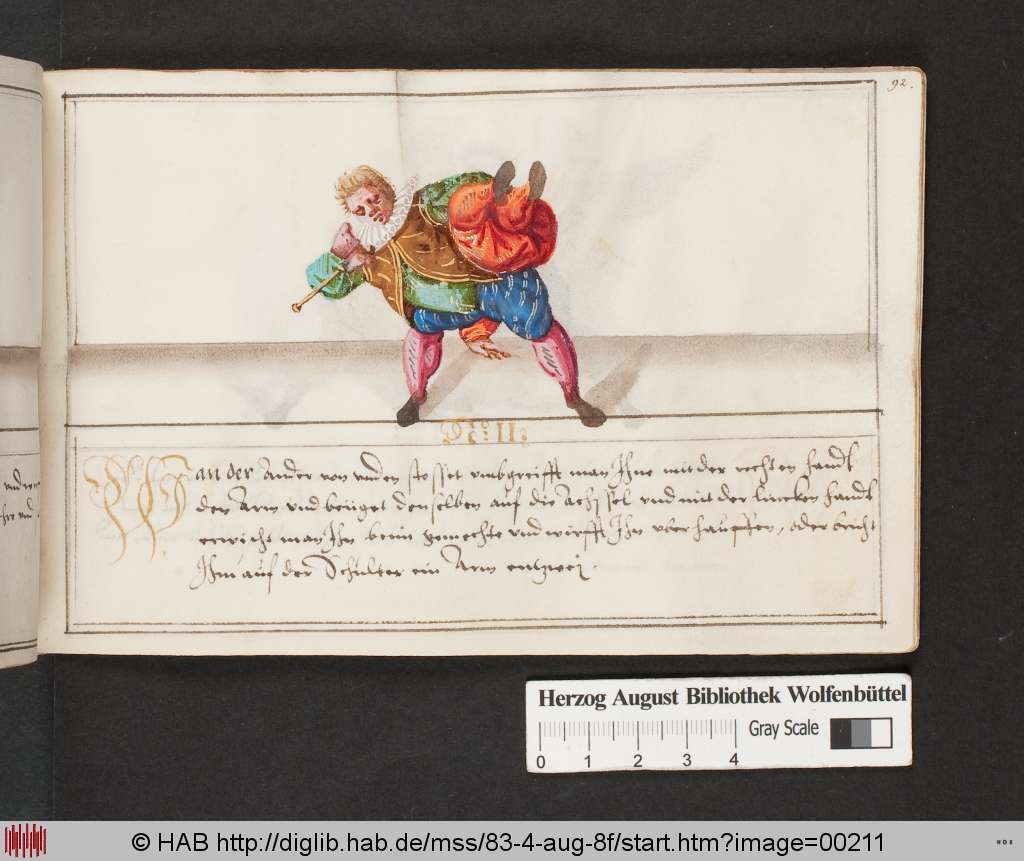 92.
No: 11:
Wan der Ander von vnden stosset vmbgreifft man Ihne mit der rechten handt
den Arm vnd beüget denselben auf die Achssel vnd mit der lincken handt
erwischt man Ihn beim gemechte vnd wirfft Ihn vber hauffen, oder bricht
Ihm auf der Schulter ein Arm entzwei.
Herzog August Bibliothek Wolfenbüttel
Gray Scale
0 1 2 3 4
© HAB http://diglib.hab.de/mss/83-4-aug-8f/start.htm?image=00211